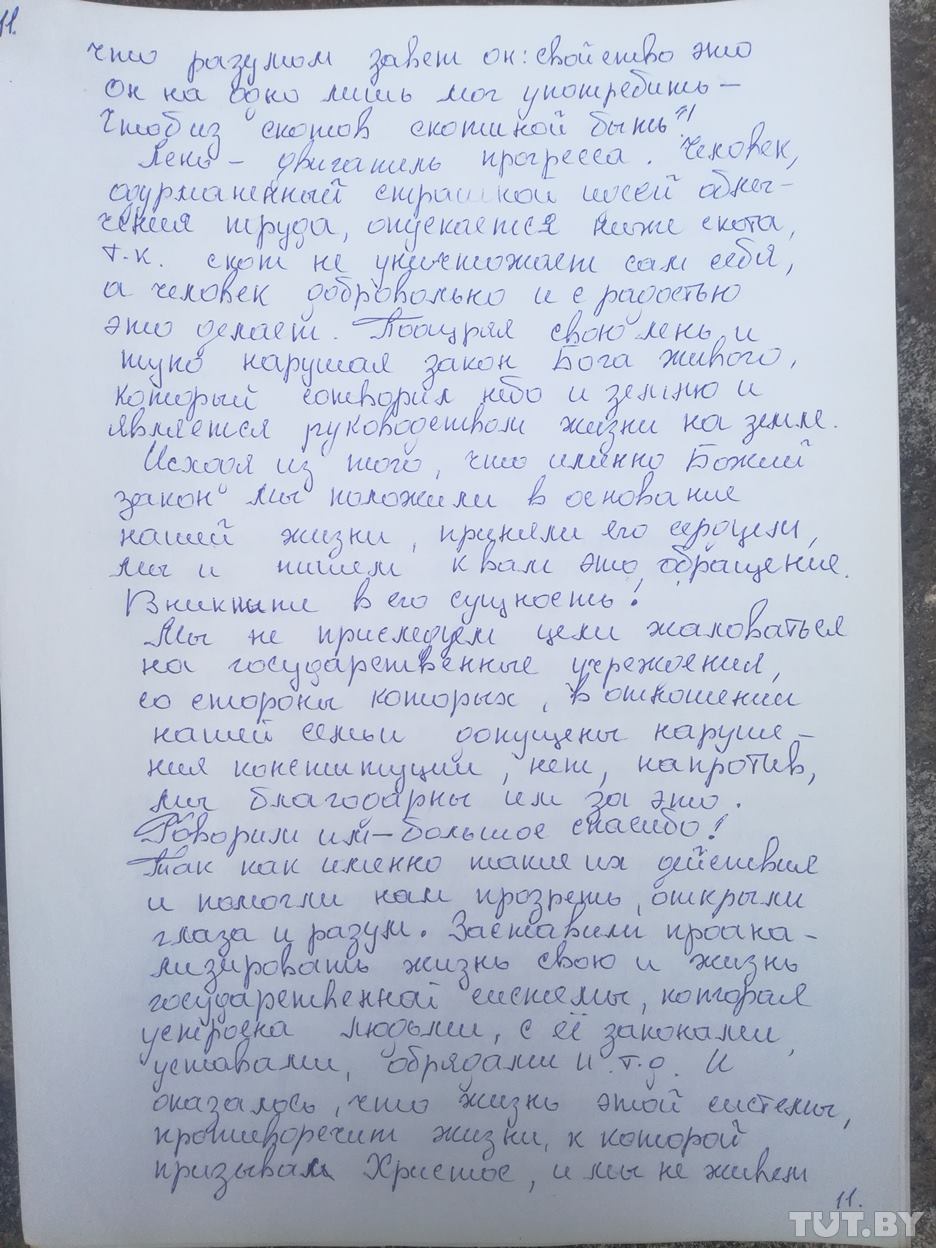 11.
что разумом завет он: свойство это
Он на одно лишь мог употребить –
Чтоб из скотов скотиной быть"!
Лень – двигатель прогресса. Человек,
одурманенный страшной идеей облег-
чения труда, опускается ниже скота,
т.к. скот не уничтожает сам себя,
а человек добровольно и с радостью
это делает. Поощряя свою лень и
тупо нарушая закон Бога живого,
который сотворил небо и землю и
является руководством жизни на земле.
Исходя из того, что именно Божий
закон мы положили в основание
нашей жизни, приняли его сердцем,
мы и пишем к вам это, обращение.
Вникните в его сущность!
Мы не приследуем цели жаловаться
на государственные учреждения,
со стороны которых, в отношении
нашей семьи допущены наруше-
ния конституции, нет, напротив,
мы благодарны им за это.
Говорим им – большое спасибо!
Так как именно такие их действия
и помогли нам прозреть, открыли
глаза и разум. Заставили проана-
лизировать жизнь свою и жизнь
государственной системы, которая
устроена людьми, с её законами,
уставами, обрядами и т.д. И
оказалось, что жизнь этой системы,
противоречит жизни, к которой
призывал Христос, и мы не живем
11.
TUT.BY